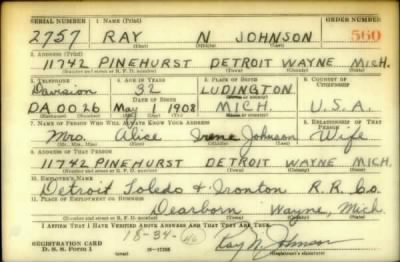 SERIAL NUMBER 1. NAME (Print) ORDER NUMBER
2757 RAY N JOHNSON 560
(First) (Middle) (Last)
2. ADDRESS (Print)
11742 PINEHURST DETROIT WAYNE MICH.
(Number and street or R. F. D. number) (Town) (County) (State)
3. TELEPHONE 4. AGE IN YEARS 5. PLACE OF BIRTH 6. COUNTRY OF CITIZENSHIP
Davison 32 LUDINGTON
DATE OF BIRTH (Town or county)
DA 0026 May 1908 MICH. U.S.A.
7. NAME OF PERSON WHO WILL ALWAYS KNOW YOUR ADDRESS 8. RELATIONSHIP OF THAT PERSON
Mrs. Alice Irene Johnson Wife
(Mr., Mrs., Miss) (First) (Middle) (Last)
9. ADDRESS OF THAT PERSON
11742 PINEHURST DETROIT WAYNE MICH.
(Number and street or R. F. D. number) (Town) (County) (State)
10. EMPLOYER'S NAME
Detroit Toledo & Ironton R. R. Co.
11. PLACE OF EMPLOYMENT OR BUSINESS
Dearborn Wayne, Mich
(Number and street or R. F. D. number) (Town) (County) (State)
I AFFIRM THAT I HAVE VERIFIED ABOVE ANSWERS AND THAT THEY ARE TRUE.
REGISTRATION CARD 18-34-
D. S. S. Form 1 Ray N. Johnson